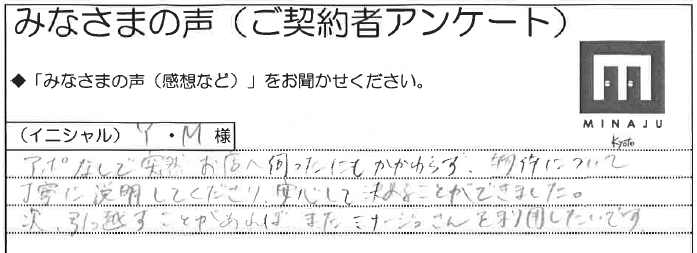 みなさまの声（ご契約者アンケート）
◆「みなさまの声（感想など）」をお聞かせください。
MINAJU
Kyoto
（イニシャル） Y ・M 様
アポなしで突然 お店へ伺ったにもかかわらず、物件について
丁寧に説明してくださり 安心して決めることができました。
次、引っ越すことがあれば またミナージュさんを利用したいです